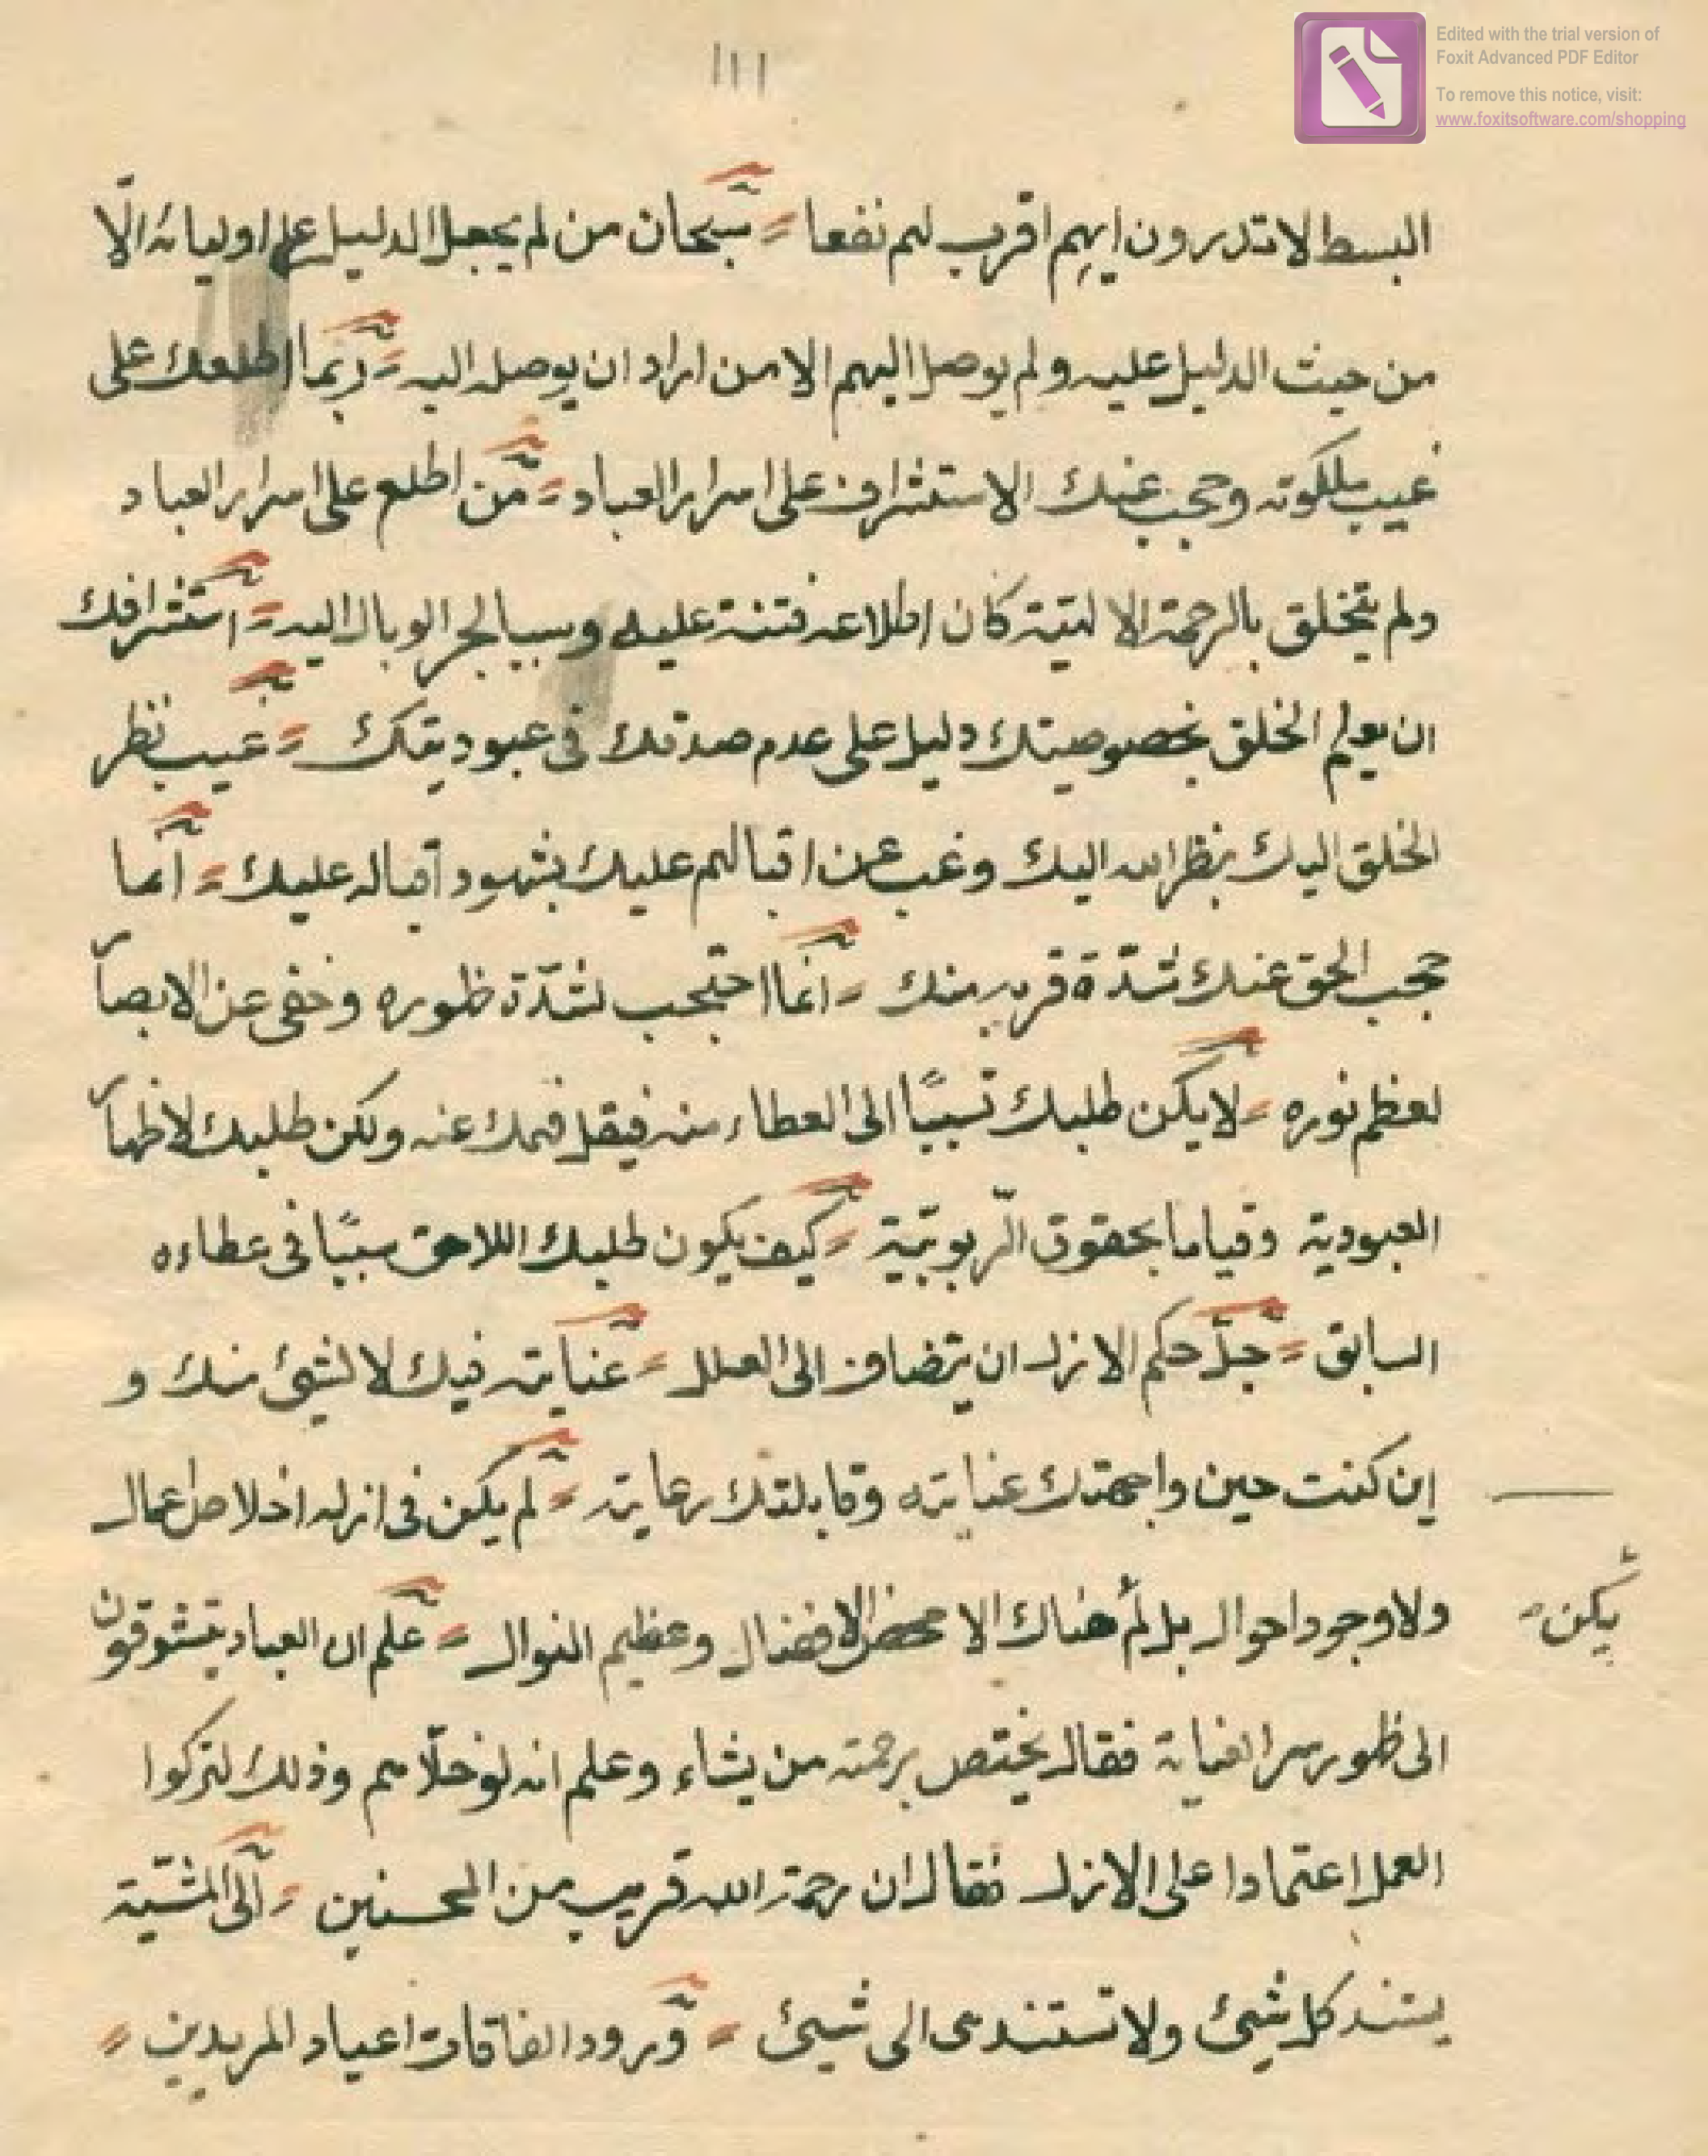 ١١١
Edited with the trial version of
Foxit Advanced PDF Editor
To remove this notice, visit:
www.foxitsoftware.com/shopping
البسط لا تدرون ايهم اقرب لهم نفعا سبحان من لم يجعل الدليل على اوليائه الّا
من حيث الدليل عليه ولم يوصل اليهم الا من اراد ان يوصله اليه ربما اطلعك على
غيب ملكوته وحجب عنك الاستشراف على اسرار العباد من اطلع على اسرار العباد
ولم يتخلق بالرحمة الالهية كان اطلاعه فتنة عليه وسببا لجر الوبال اليه استشرافك
ان يعلم الخلق بخصوصيتك دليل على عدم صدقك فى عبوديتك غيب نظر
الخلق اليك بنظر الله اليك وغب عن اقبالهم عليك بشهود اقباله عليك انما
حجب الحق عنك شدّة قربه منك انما احتجب لشدّة ظهوره وخفى عن الابصار
لعظم نوره لا يكن طلبك تسببًا الى العطاء منه فيقل فهمك عنه وليكن طلبك لاظهار
العبودية وقياما بحقوق الرّبوبيّة كيف يكون طلبك اللاحق سببًا فى عطاءه
السابق جلّ حكم الازل ان ينضاف الى العلل عنايته فيك لا لشئ منك و
اين كنت حين واجهتك عنايته وقابلتك رعايته لم يكن فى ازله اخلاص اعمال
ولا وجود احوال بل لم هناك الا محض الافضال وعظيم النوال علم ان العباد يتشوقون
يكن
الى ظهور سر العناية فقال يختص برحمته من يشاء وعلم انه لو خلّاهم وذلك لتركوا
العمل اعتمادا على الازل فقال ان رحمة الله قريب من المحسنين الى المشيّة
يستند كل شئ ولا تستند هى الى شيئ ورود الفاقات اعياد المريدين